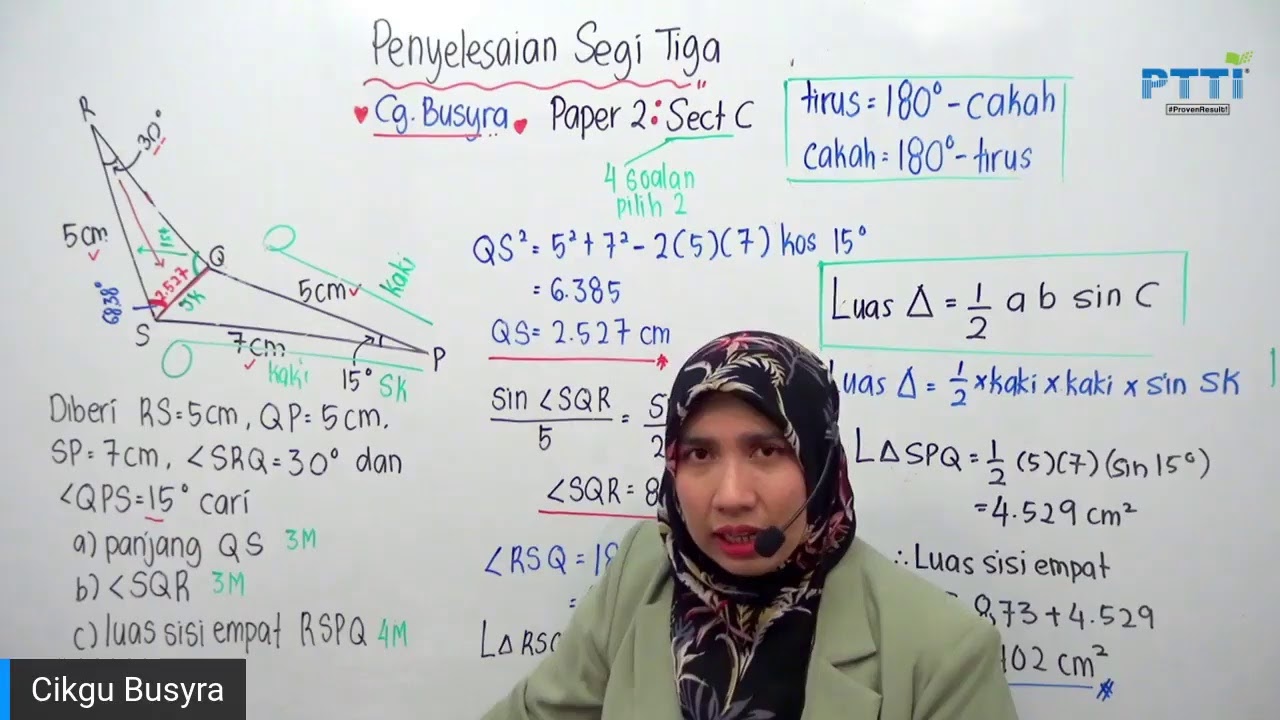 Penyelesaian Segi Tiga
Cg. Busyra Paper 2: Sect C
4 soalan
pilih 2
tirus = 180° - cakah
cakah = 180° - tirus
PTTI
#ProvenResult!
R
30°
5cm
1st
Q
2.527
SK
68.38°
S
5cm
kaki
7cm
kaki
15°
SK
P
Diberi RS = 5cm, QP = 5cm,
SP = 7cm, ∠SRQ = 30° dan
∠QPS = 15° cari
a) panjang QS 3M
b) ∠SQR 3M
c) luas sisi empat RSPQ 4M
QS² = 5² + 7² - 2(5)(7) kos 15°
= 6.385
QS = 2.527 cm
Sin ∠SQR / 5 =
∠SQR = 8
∠RSQ = 18
L△RSQ
Luas △ = 1/2 a b sin C
Luas △ = 1/2 × kaki × kaki × sin SK
L△SPQ = 1/2 (5)(7)(sin 15°)
= 4.529 cm²
∴ Luas sisi empat
873 + 4.529
102 cm²
Cikgu Busyra